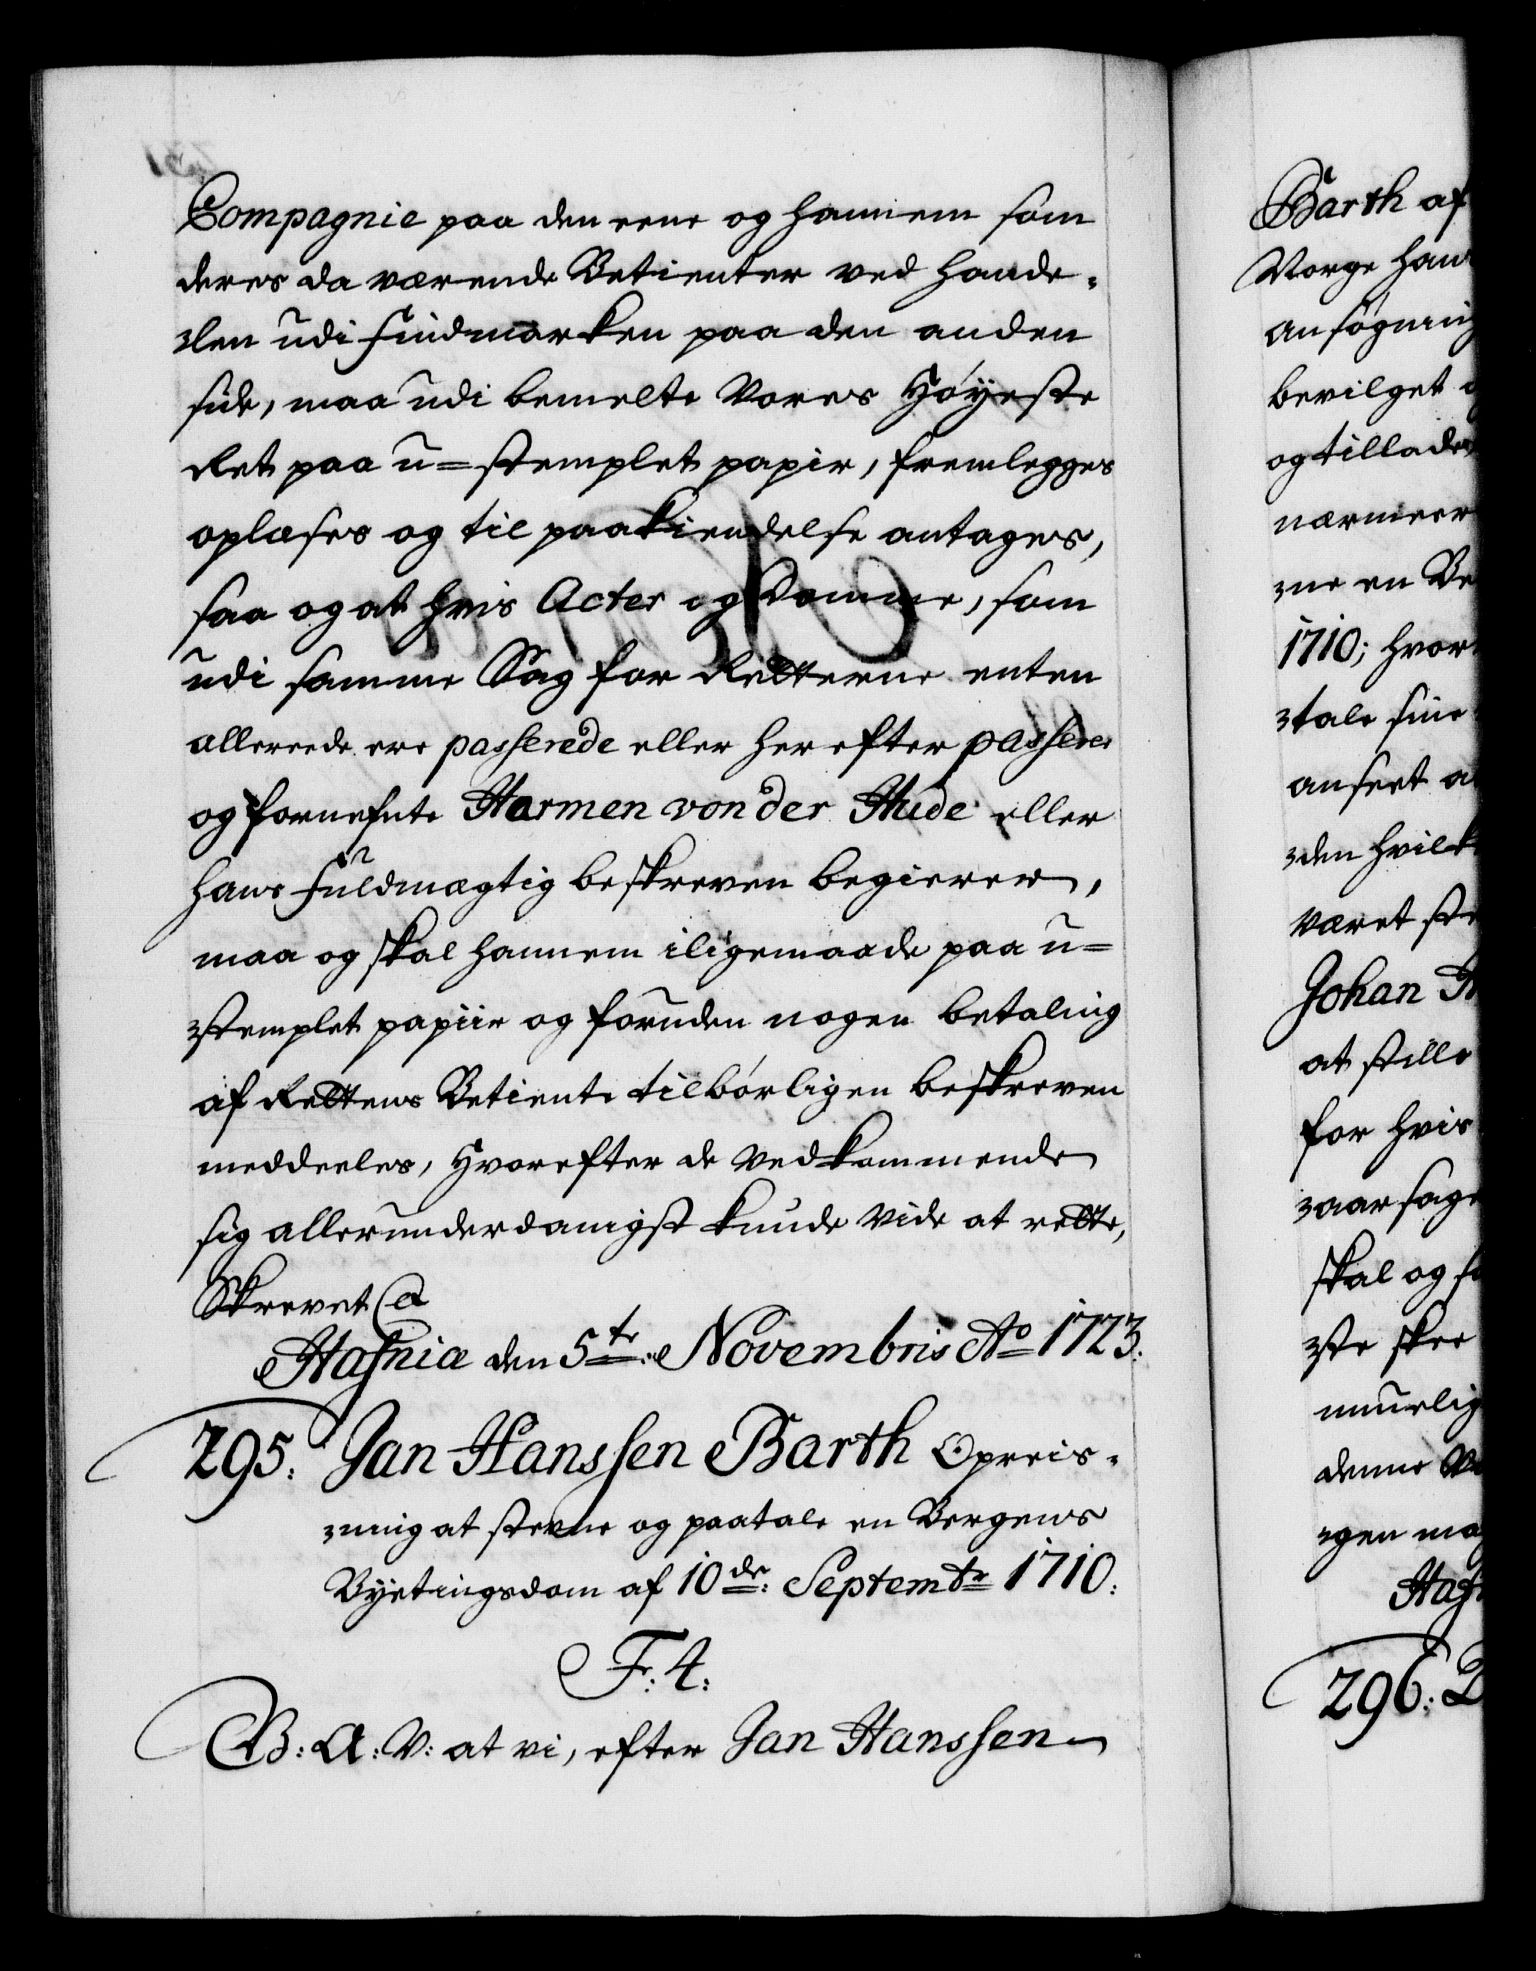 Compagnie paa den eene og hannem som
deres da værende Betienter ved hande-
len udi Findmarken paa den anden
side, maa udi bemelte Vores Høyeste
Ret paa u=stemplet papir, fremlegges
oplæses og til paakiendelse antages,
saa og at hvis Acter og Domme, som
udi samme Sag for Retterne enten
allereede ere passerede eller herefter passerer
og fornefnte Harmen von der Hude eller
hans fuldmægtig beskreven begierer,
maa og skal hannem iligemaade paa u=
stemplet papiir og foruden nogen betaling
af Rettens Betiente tilbørligen beskreven
meddeeles, Hvorefter de Vedkommende
sig allerunderdanigst kunde vide at rette,
Skrevet &
Hafniæ den 5te: Novembris Ao 1723.
295. Jan Hanssen Barth Opreis-
ning at stevne og paatale en Bergens
Byetingsdom af 10de: Septembr 1710.
F: 4:
B: A: V: at vi, efter Jan Hanssen
Barth af
Norge han
ansøgning
bevilget
og tillade
nærmeer
ne en Be
1710; hvor
tale sine
anseet a
den hvilk
været ste
Johan
at stille
for hvis
aarsage
skal og s
ste skee
muelig
denne
gen ma
Haf
296: